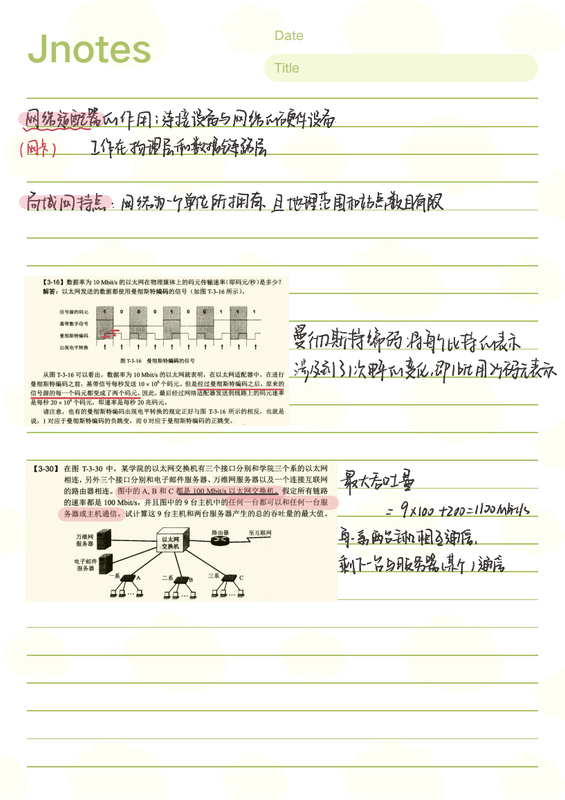 Jnotes
Date
Title
网络适配器的作用：连接设备与网络的硬件设备
(网卡) 工作在物理层和数据链路层
局域网特点：网络为一个单位所拥有、且地理范围和站点数目有限
【3-16】数据率为 10 Mbit/s 的以太网在物理媒体上的码元传输速率(即码元/秒)是多少？
解答：以太网发送的数据都使用曼彻斯特编码的信号（如图 T-3-16 所示）。
信号源的码元 1 0 0 0 0 1 0 0 1 1 1
基带数字信号
曼彻斯特编码
出现电平转换
图 T-3-16 曼彻斯特编码的信号
从图 T-3-16 可以看出，数据率为 10 Mbit/s 的以太网就表明，在以太网适配器中，在进行
曼彻斯特编码之前，基带信号每秒发送 10 × 10⁶ 个码元。但是经过曼彻斯特编码之后，原来的
信号源的每一个码元都变成了两个码元。因此，最后经过网络适配器发送到线路上的码元速率
是每秒 20 × 10⁶ 个码元，即速率是每秒 20 兆码元。
请注意，也有的曼彻斯特编码出现电平转换的规定正好与图 T-3-16 所示的相反，也就是
说，1 对应于曼彻斯特编码的负跳变，而 0 对应于曼彻斯特编码的正跳变。
曼彻斯特编码，将每个比特的表示
涉及到了1次电平的变化，即1bit用2个码元表示
【3-30】在图 T-3-30 中，某学院的以太网交换机有三个接口分别和学院三个系的以太网
相连，另外三个接口分别和电子邮件服务器、万维网服务器以及一个连接互联网
的路由器相连。图中的 A, B 和 C 都是 100 Mbit/s 以太网交换机。假定所有链路
的速率都是 100 Mbit/s，并且图中的 9 台主机中的任何一台都可以和任何一台服
务器或主机通信。试计算这 9 台主机和两台服务器产生的总的吞吐量的最大值。
最大吞吐量
= 9×100 +200=1100Mbit/s
每系两台主机相互通信，
剩下一台与服务器(某个)通信
万维网
服务器
以太网
交换机
路由器
至互联网
电子邮件
服务器
一系 A
二系 B
三系 C